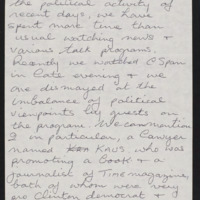 the political activity of
recent days, we have
spent more time than
usual watching news &
various talk programs.
Recently we watched CSpan
in late evening & we
are dismayed at the
imbalance of political
viewpoints by guests on
the program. We can mention
2 in particular, a lawyer
named Kaus who was
promoting a book & a
journalist of Time magazine,
both of whom were very
pro Clinton democrat &